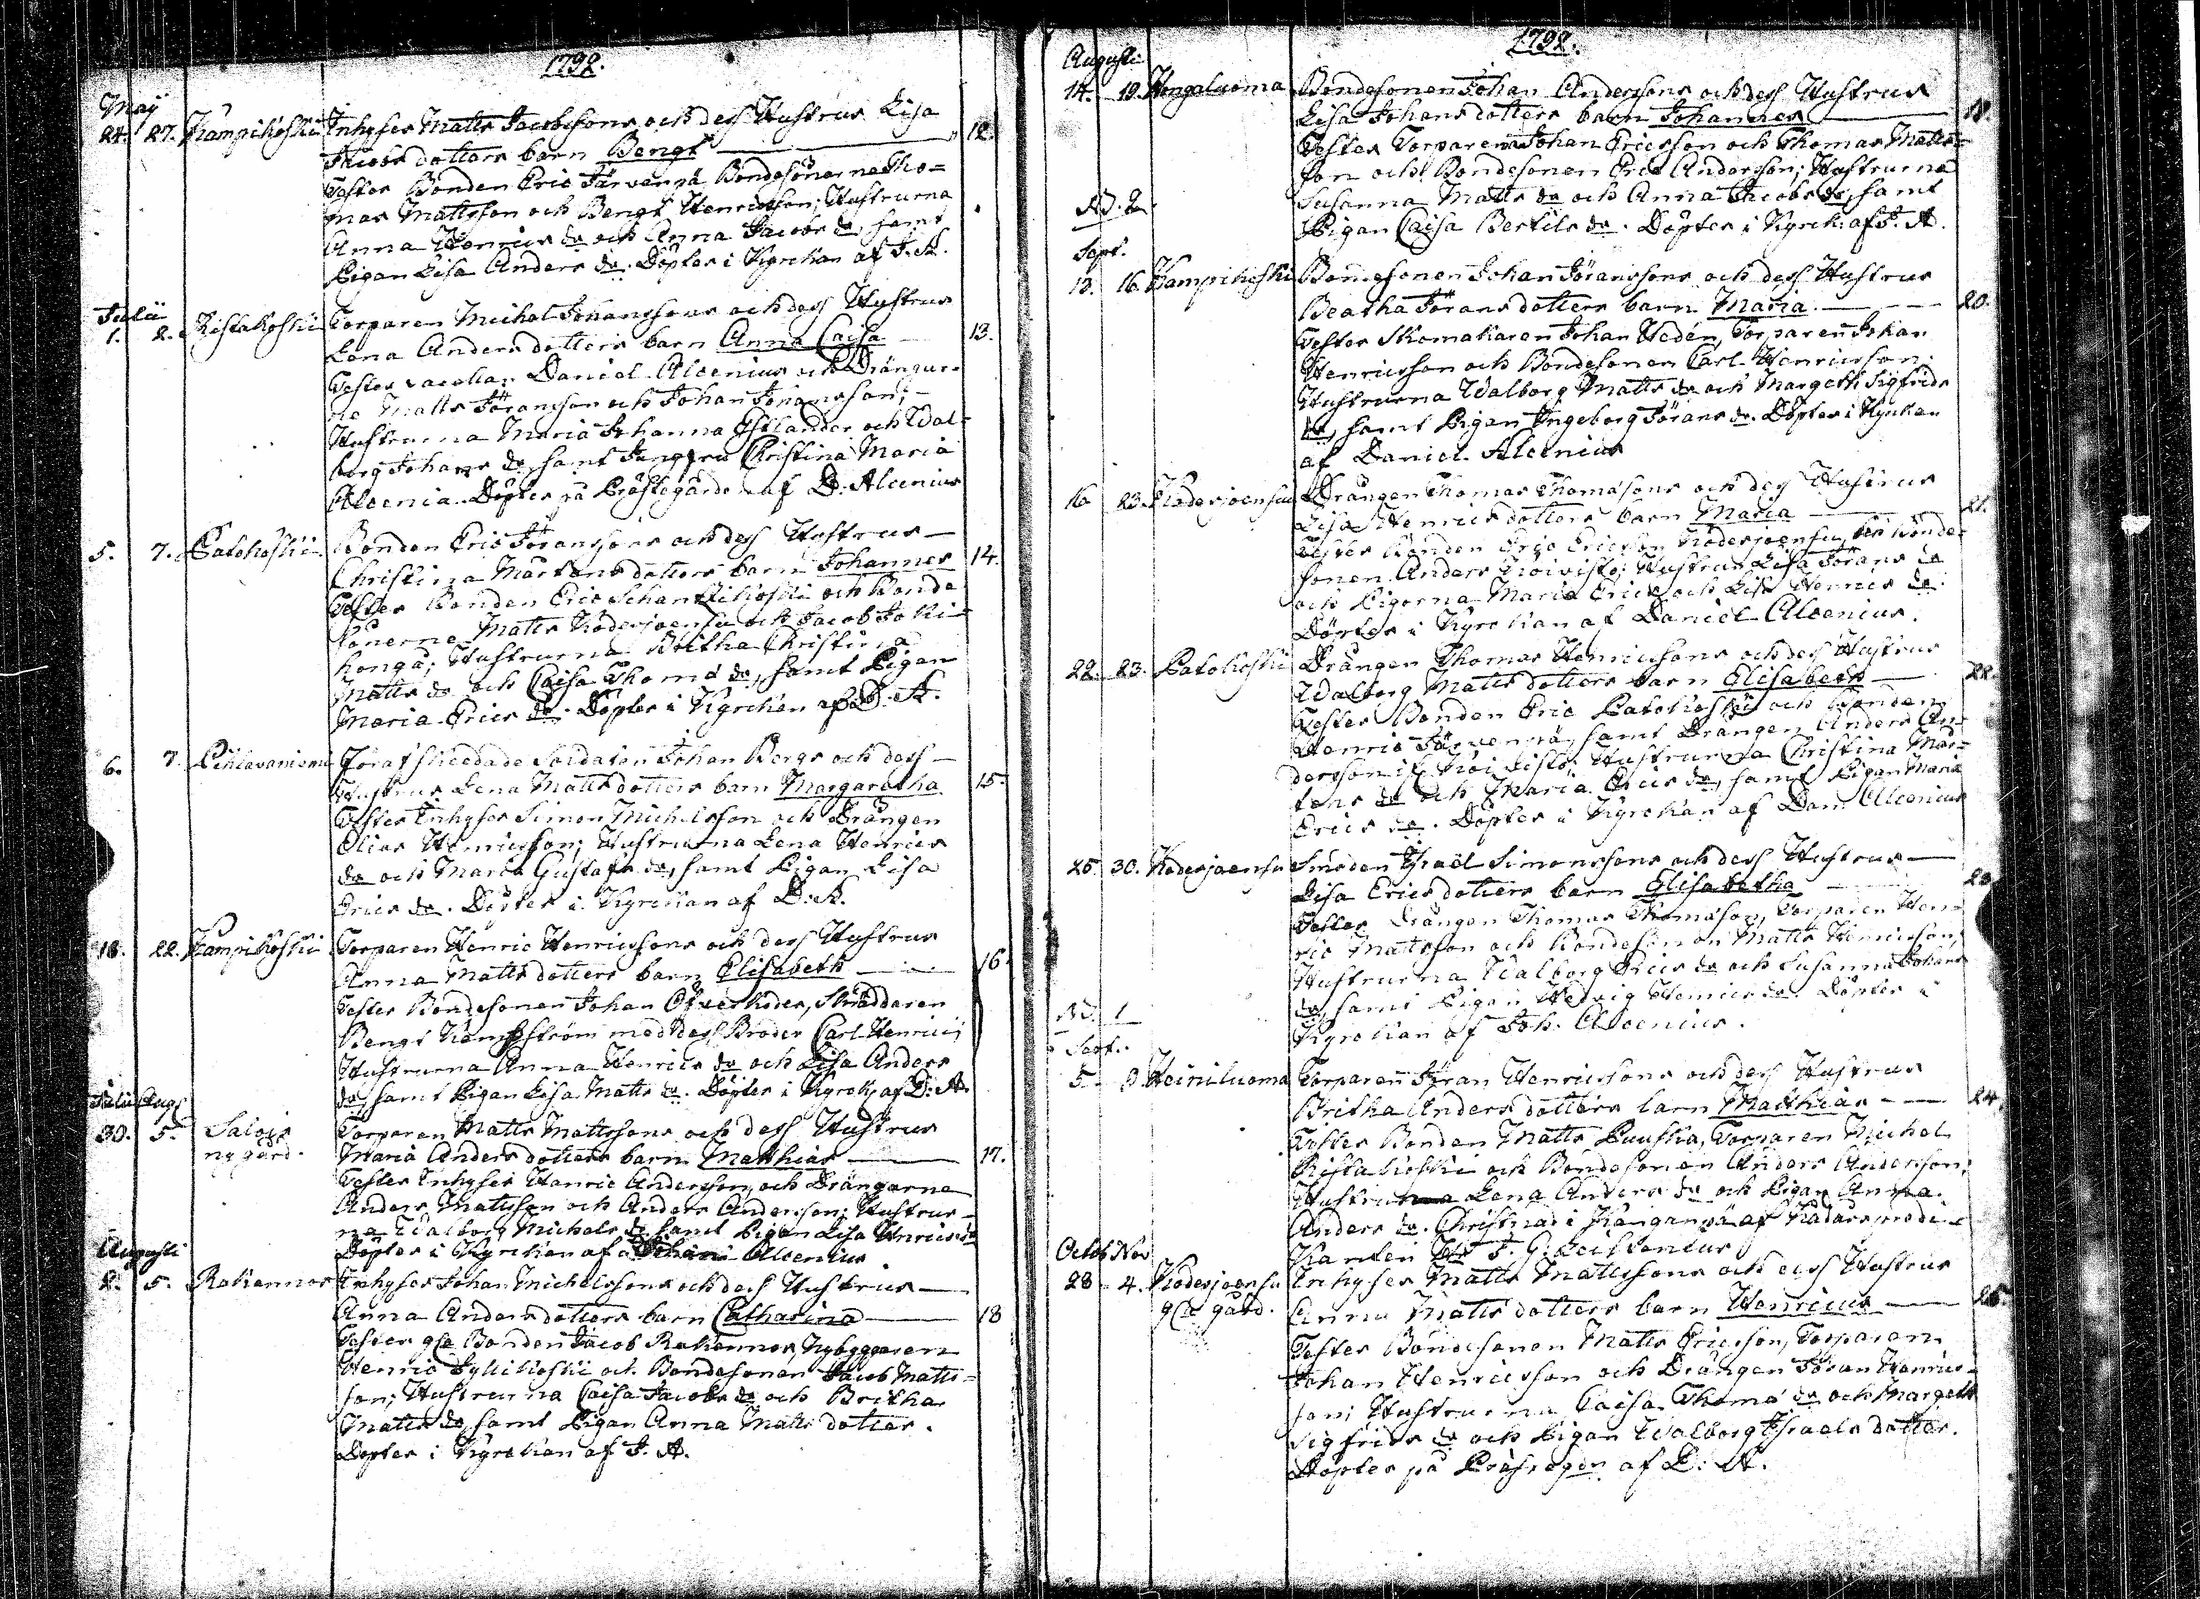 1792.
Maij
24. 27. Kampikoski Inhyses Matts Jacobssons och dess Hustrus Lisa
Jacobs dotters barn Bengt 12.
Testes Bonden Eric Järvenpä Bondesönerna Tho-
mas Mattsson och Bengt Henricsson; Hustrurna
Anna Henrics dr och Anna Jacobs dr, samt
Pigan Lisa Anders dr. Döptes i Kyrckan af J. A.
Julii
1. 2. Ristakoski Torparen Michel Johanssons och dess Hustrus
Lena Anders dotters barn Anna Caisa 13.
Testes Daniel Alcenius och Drängar-
ne Matts Jöransson och Johan Johansson;
Hustrurna Maria Johanna Estlander och Wal-
borg Johans dr, samt Jungfru Christina Maria
Alcenia. Döptes på Prästegården af D. Alcenius
5. 7. Latokoski Bonden Eric Jöranssons och dess Hustrus
Christina Mårtens dotters barn Johannes 14.
Testes Bonden Eric och Bonde
sönerne Matts Kodesjoensu och Jacob Joki-
konga; Hustrurna Britha Christina
Matts dr och Caisa Thoma dr, samt Pigan
Maria Erics dr. Döptes i Kyrckan af D. A.
6. 7. Pihlavaniemi Förafskedade Soldaten Johan Bergs och dess
Hustrus Lena Matts dotters barn Margaretha 15.
Testes Inhyses Simon Michelsson och Drängen
Elias Henricsson; Hustrurna Lena Henrics
dr och Maria Gustafs dr, samt Pigan Lisa
Erics dr. Döptes i Kyrckan af D. A.
18. 22. Kampikoski Torparen Henric Henricssons och dess Hustrus
Anna Matts dotters barn Elisabeth 16.
Testes Bondesonen Johan Skräddaren
Bengt med dess Broder Carl Henric;
Hustrurna Anna Henrics dr och Lisa Anders
dr, samt Pigan Lisa Matts dr. Döptes i Kyrck. af D. A.
Julii Aug.
30. 5. Salois Torparen Matts Mattssons och dess Hustrus
nygård. Maria Anders dotters barn Matthias 17.
Testes Inhyses Henric Andersson, och Drängarne
Anders Mattsson och Anders Andersson; Hustrur-
na Walborg Michels dr samt Pigan Lisa Henricsdr
Döptes i Kyrckan af Johan Alcenius
Augusti
2. 5. Rahkannos Inhyses Johan Michelssons och dess Hustrus
Anna Anders dotters barn Catharina 18
Testes Bonden Jacob Rahkannos, Nybyggaren
Henric Jyllikoski och Bondesonen Jacob Matts-
son; Hustrurna Caisa Jacobs dr och Britha
Matts dr, samt Pigan Anna Matts dotter.
Döptes i Kyrckan af J. A.
1792.
Augusti
14. 19. Hongaluoma Bondesonen Johan Anderssons och dess Hustrus
Lisa Johans dotters barn Johannes 19.
Testes Torparen Johan Ericsson och Thomas Matts-
son och Bondesonen Eric Andersson; Hustrurna
Susanna Matts dr och Anna Jacobs dr, samt
Pigan Caisa Bertils dr. Döptes i Kyrck. af J. A.
Sept.
13. 16. Kampikoski Bondesonen Johan Jöranssons och dess Hustrus
Beatha Jörans dotters barn Maria 20.
Testes Skomakaren Johan Hedén, Torparen Johan
Henricsson och Bondesonen Carl Henricsson;
Hustrurna Walborg Matts dr och Margeth Sigfrids
dr, samt Pigan Ingeborg Jörans dr. Döptes i Kyrckan
af Daniel Alcenius
16 23. Kodesjoensu Drängen Thomas Thomasons och dess Hustrus
Lisa Henrics dotters barn Maria 21.
Testes Bonden Eric Ericsson Kodesjoensu, Bonde-
sonen Anders Koivisto; Hustrun Lisa Jörans dr
och Pigorna Maria Erics och Lisa Henrics dr.
Döptes i Kyrckan af Daniel Alcenius.
22. 23. Latokoski Drängen Thomas Henricssons och dess Hustrus
Walborg Matts dotters barn Elisabeth 22.
Testes Bonden Eric Latokoski och Bonden
Henric Järvenpä, samt Drängen Anders An-
dersson Koivisto; Hustrurna Christina Mår-
tens dr och Maria Erics dr, samt Pigan Maria
Erics dr. Döptes i Kyrckan af Dan. Alcenius
25. 30. Kodesjoensu Smeden Israel Simonssons och dess Hustrus
Lisa Erics dotters barn Elisabetha 23
Testes Drängen Thomas Thomason, Torparen Hen-
ric Mattsson och Bondesonen Matts Henricsson;
Hustrurna Walborg Erics dr och Susanna Johans
dr, samt Pigan Hedvig Henrics dr. Döptes i
Kyrckan af Joh. Alcenius.
Sept.
5. 9. Heiniluoma Torparen Jöran Henricssons och dess Hustrus
Britha Anders dotters barn Matthias 24.
Testes Bonden Matts Puuska, Torparen Michel
Ristakoski och Bondesonen Anders Andersson;
Hustrun Lena Anders dr och Pigan Anna
Anders dr. Christnad i Kangaspä af
J. G.
Octob Nov
28 4. Kodesjoensu Inhyses Matts Mattssons och dess Hustrus
gård. Anna Matts dotters barn Henricus 25.
Testes Bondesonen Matts Ericsson, Torparen
Johan Henricsson och Drängen Jöran Henrics-
son; Hustrurna Caisa Thoma dr och Margeth
Sigfrids dr och Pigan Walborg Israels dotter.
Döptes på af D. A.